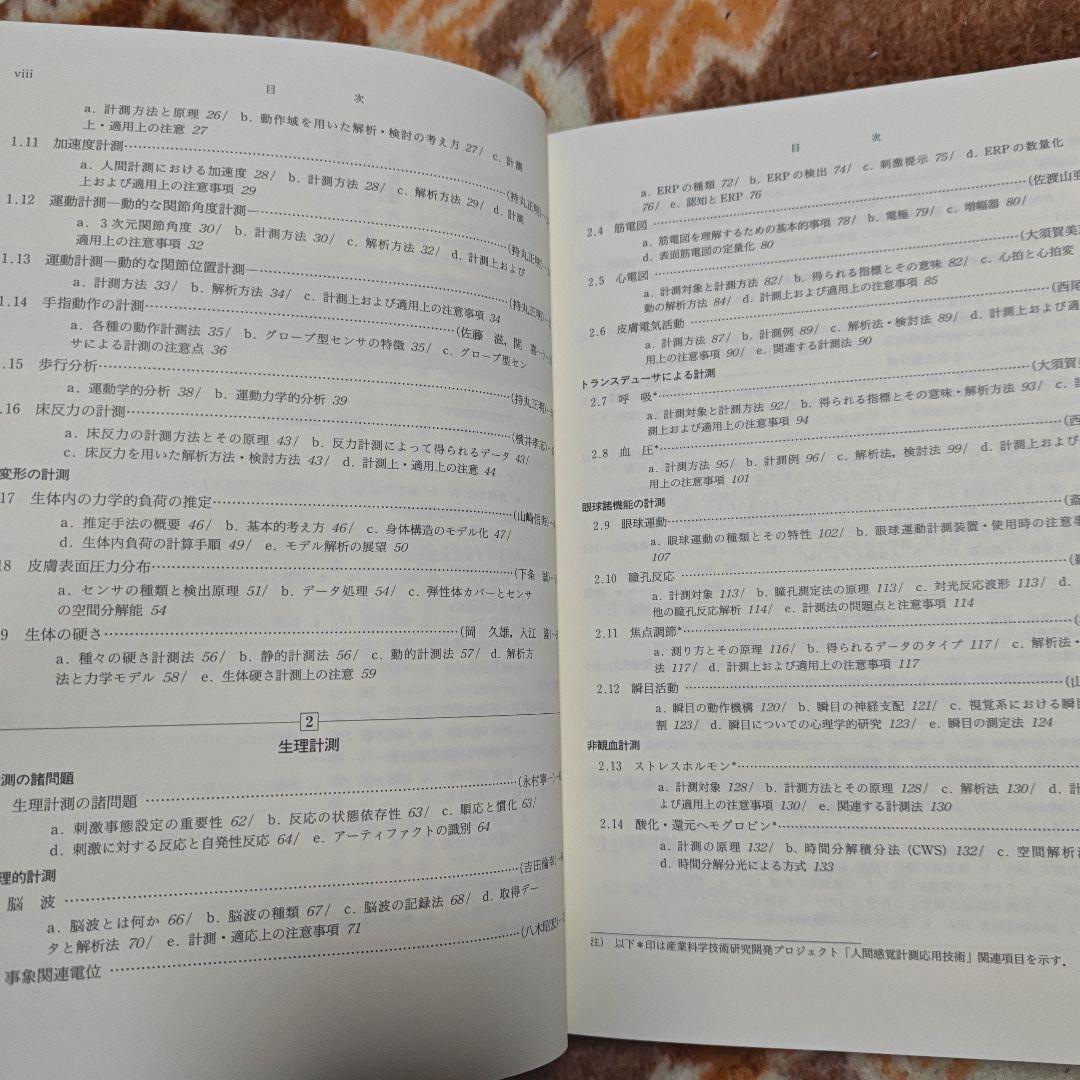 viii
目 次
a．計測方法と原理 26/ b．動作域を用いた解析・検討の考え方 27/ c．計測
上・適用上の注意 27
1.11 加速度計測……(持丸正明)
a．人間計測における加速度 28/ b．計測方法 28/ c．解析方法 29/ d．計測
上および適用上の注意事項 29
1.12 運動計測―動的な関節角度計測―……(持丸正明)
a．3次元関節角度 30/ b．計測方法 30/ c．解析方法 32/ d．計測上および
適用上の注意事項 32
1.13 運動計測―動的な関節位置計測―……(持丸正明)
a．計測方法 33/ b．解析方法 34/ c．計測上および適用上の注意事項 34
1.14 手指動作の計測……(佐藤 滋，関 喜一)
a．各種の動作計測法 35/ b．グローブ型センサの特徴 35/ c．グローブ型セン
サによる計測の注意点 36
.15 歩行分析……(持丸正明)
a．運動学的分析 38/ b．運動力学的分析 39
.16 床反力の計測……(横井孝志)
a．床反力の計測方法とその原理 43/ b．反力計測によって得られるデータ 43/
c．床反力を用いた解析方法・検討方法 43/ d．計測上・適用上の注意 44
変形の計測
17 生体内の力学的負荷の推定……(山崎信寿)
a．推定手法の概要 46/ b．基本的考え方 46/ c．身体構造のモデル化 47/
d．生体内負荷の計算手順 49/ e．モデル解析の展望 50
18 皮膚表面圧力分布……(下条 誠)
a．センサの種類と検出原理 51/ b．データ処理 54/ c．弾性体カバーとセンサ
の空間分解能 54
9 生体の硬さ……(岡 久雄，入江 隆)
a．種々の硬さ計測法 56/ b．静的計測法 56/ c．動的計測法 57/ d．解析方
法と力学モデル 58/ e．生体硬さ計測上の注意 59
2
生理計測
測の諸問題
生理計測の諸問題……(永村寧一)
a．刺激事態設定の重要性 62/ b．反応の状態依存性 63/ c．順応と慣化 63/
d．刺激に対する反応と自発性反応 64/ e．アーティファクトの識別 64
理的計測
脳 波……(吉田倫幸)
a．脳波とは何か 66/ b．脳波の種類 67/ c．脳波の記録法 68/ d．取得デー
タと解析法 70/ e．計測・適応上の注意事項 71
事象関連電位……(八木昭宏)
目 次
a．ERPの種類 72/ b．ERPの検出 74/ c．刺激提示 75/ d．ERPの数量化
76/ e．認知とERP 76
2.4 筋電図……(佐渡山亜
a．筋電図を理解するための基本的事項 78/ b．電極 79/ c．増幅器 80/
d．表面筋電図の定量化 80
2.5 心電図……(大須賀美
a．計測対象と計測方法 82/ b．得られる指標とその意味 82/ c．心拍と心拍変
動の解析方法 84/ d．計測上および適用上の注意事項 85
2.6 皮膚電気活動……(西尾
a．計測方法 87/ b．計測例 89/ c．解析法・検討法 89/ d．計測上および適
用上の注意事項 90/ e．関連する計測法 90
トランスデューサによる計測
2.7 呼 吸*……(大須賀美
a．計測対象と計測方法 92/ b．得られる指標とその意味・解析方法 93/ c．計
測上および適用上の注意事項 94
2.8 血 圧*……(西
a．計測方法 95/ b．計測例 96/ c．解析法，検討法 99/ d．計測上および
用上の注意事項 101
眼球諸機能の計測
2.9 眼球運動……(斎
a．眼球運動の種類とその特性 102/ b．眼球運動計測装置・使用時の注意事
107
2.10 瞳孔反応……
a．計測対象 113/ b．瞳孔測定法の原理 113/ c．対光反応波形 113/ d．
他の瞳孔反応解析 114/ e．計測法の問題点と注意事項 114
2.11 焦点調節*……
a．測り方とその原理 116/ b．得られるデータのタイプ 117/ c．解析法・
法 117/ d．計測上および適用上の注意事項 117
2.12 瞬目活動……(山
a．瞬目の動作機構 120/ b．瞬目の神経支配 121/ c．視覚系における瞬目
割 123/ d．瞬目についての心理学的研究 123/ e．瞬目の測定法 124
非観血計測
2.13 ストレスホルモン*……
a．計測対象 128/ b．計測方法とその原理 128/ c．解析法 130/ d．計
よび適用上の注意事項 130/ e．関連する計測法 130
2.14 酸化・還元ヘモグロビン*……
a．計測の原理 132/ b．時間分解積分法（CWS）132/ c．空間解析法
d．時間分解分光による方式 133
注） 以下＊印は産業科学技術研究開発プロジェクト「人間感覚計測応用技術」関連項目を示す．